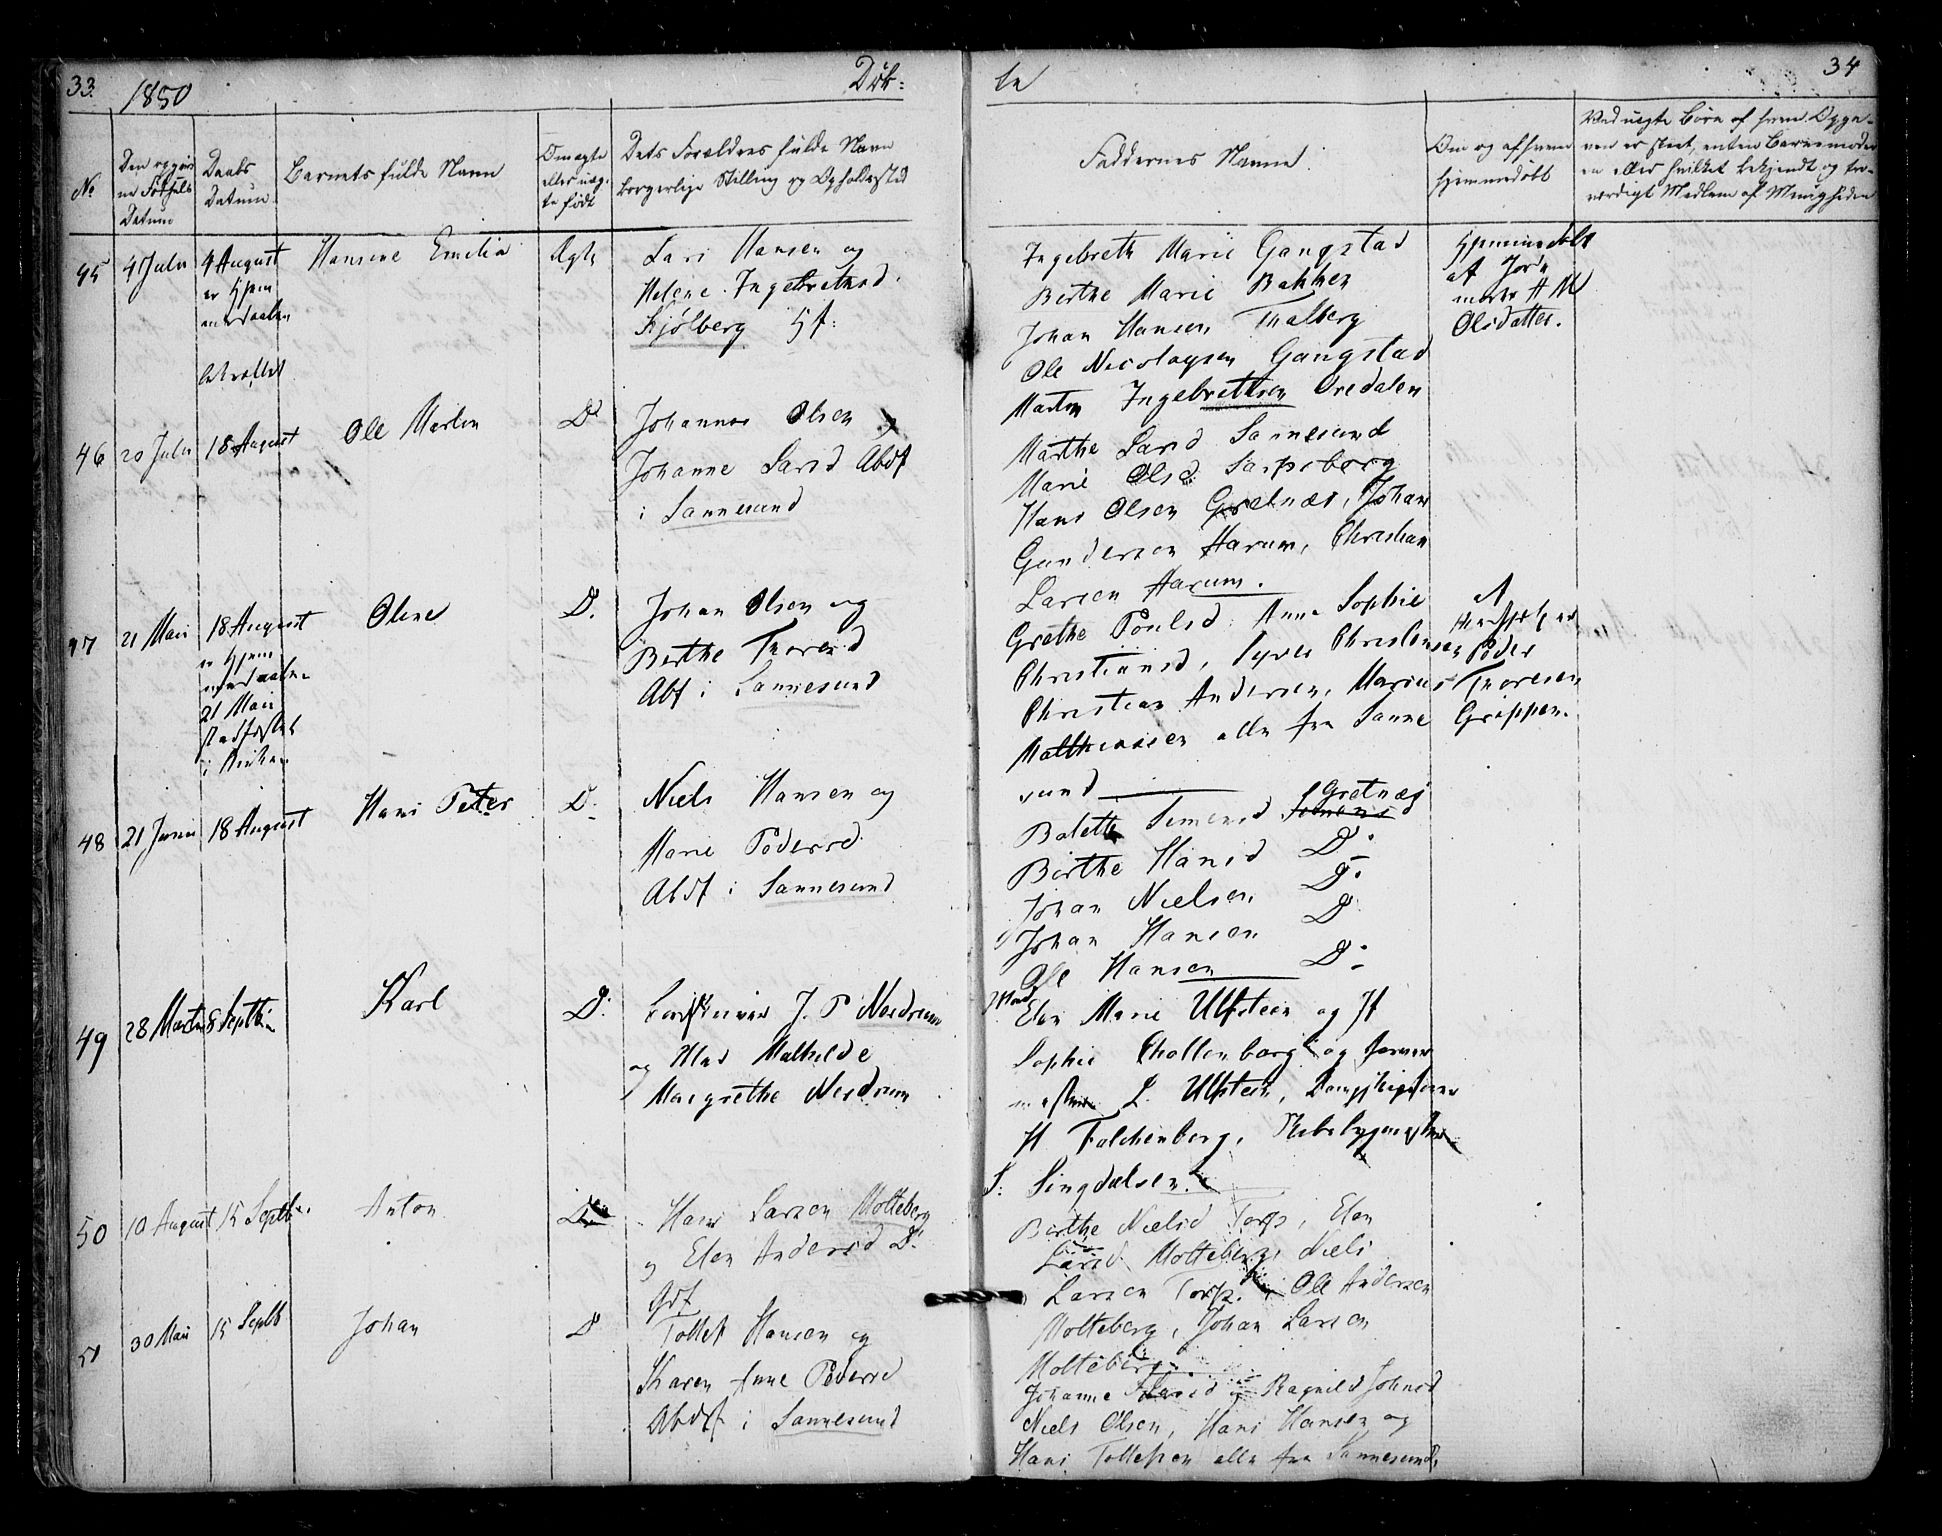 33.
1850
Döb=
te
34
No
Den opgiv
ne Fødsels
Datum
Daabs
Datum
Barnets fulde Navn
Om ægte
eller uæg-
te født
Dets Forældres fulde Navn
borgerlige Stilling og Opholdssted
Faddernes Navne
Om og af hvem
hjemmedöbt
Ved uegte Børn af hvem Opga-
ven er skeet, enten Barnemoder
en eller hvilket bekjendt og tro-
værdigt Medlem af Menigheden
45
4 Juli
4 August
er hjem
Hansine Emilie
Ægte
Lars Hansen og
Helene Ingebrethsd.
Kjølberg Hf:
Ingebreth Marie Gangstad
Berthe Marie Bakken
Johan Hansen Thalberg
Ole Nicolaysen Gangstad
Martin Ingebrethsen Oredalen
Hjemmedöbt
af Jord
moder A M
Olsdatter.
46
20 Juli
18 August
Ole Martin
D
Johannes Olsen og
Johanne Larsd Abdf
i Sannesund
Marthe Larsd Sannesund
Marie Olsd Sarpsborg
Hans Olsen Grelnæs, Johan
Gundersen Harum, Christian
Larsen Harum.
47
21 Mai
18 August
er hjem
21 Mai
stadfæstet
i Kirken
Oline
D.
Johan Olsen og
Berthe Thoresd
Abf i Sannesund
Grethe Poulsd. Anne Sophie
Christiansd, Syver Christensen
Christian Andersen, Marius
Matthiassen alle fra Sanne
sund
Peder
Thoresen
Greppen.
48
21 Juni
18 August
Hans Peter
D.
Niels Hansen og
Marie Pedersd
Abdf i Sannesund
Bolette Simensd Grelnæs
Berthe Hansd D.
Johan Nielsen D.
Johan Hansen D
Ole Hansen D.
49
28 Marts
8 Septbr
Karl
D.
J. P Nerdrum
og Mad Mathilde
Margrethe Nerdrum
Mad
Elen Marie Ulfsteen og Jf
Sophie Chollenborg og
L. Ulfsteen,
H Falchenberg,
S. Singdalsen.
50
10 August
15 Septbr.
Anton
D
Hans Larsen Molteberg
og Elen Andersd D.
Gdf
Berthe Nielsd Torp, Elen
Larsd Molteberg, Niels
Larsen Torp. Ole Andersen
Molteberg, Johan Larsen
Molteberg.
51
30 Mai
15 Septb
Johan
D
Tollef Hansen og
Karen Anne Pedersd
Abdf i Sannesund
Johanne og Ragnild Johnsd
Niels Olsen, Hans Hansen og
Hans Tollefsen alle fra Sannesund.